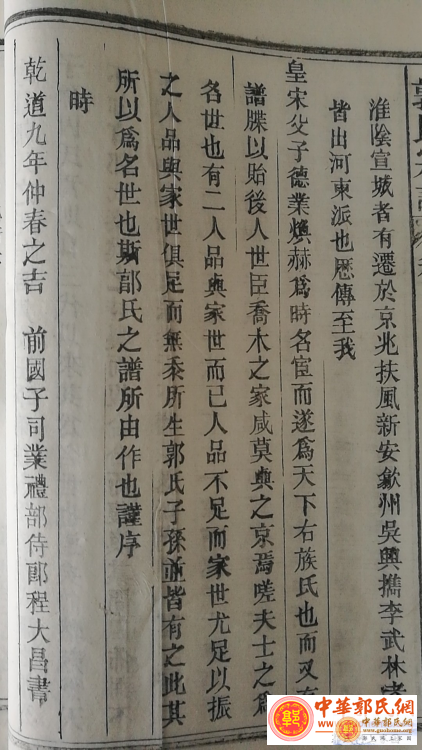 淮陰宣城者有遷於京兆扶風新安歙州吳興携李武林
皆出河東派也歷傳至我
皇宋父子德業煥赫爲時名宦而遂爲天下右族氏也而又
譜牒以貽後人世臣喬木之家咸莫與之京焉嗟夫士之爲
名世也有二人品與家世而已人品不足而家世尤足以振
之人品與家世俱足而無忝所生郭氏子孫並皆有之此其
所以爲名世也斯郭氏之譜所由作也謹序
時
乾道九年仲春之吉 前國子司業禮部侍郎程大昌書
中華郭氏網